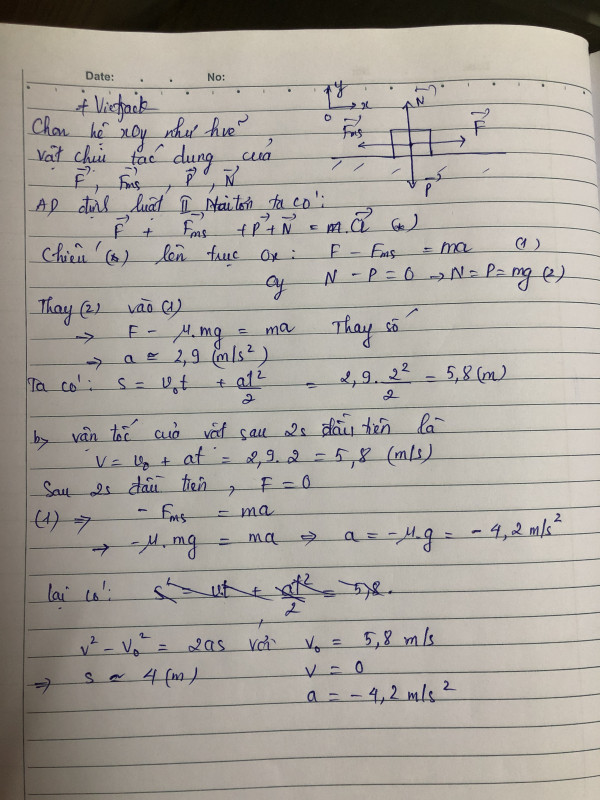 Date: No:
+ Vietjack
y
x
0
N
Fms
F
P
Chọn hệ xOy như hvẽ
vật chịu tác dụng của
F, Fms, P, N
AD định luật II Niutơn ta có:
F + Fms + P + N = m.a (*)
Chiếu (*) lên trục Ox: F - Fms = ma (1)
Oy N - P = 0 → N = P = mg (2)
Thay (2) vào (1)
→ F - μ.mg = ma Thay số
→ a ≃ 2,9 (m/s²)
Ta có: S = v₀t + at²/2 = 2,9.2²/2 = 5,8 (m)
b, vận tốc của vật sau 2s đầu tiên là
V = v₀ + at = 2,9.2 = 5,8 (m/s)
Sau 2s đầu tiên, F = 0
(1) ⇒ - Fms = ma
→ -μ.mg = ma ⇒ a = -μ.g = - 4,2 m/s²
lại có: S' = vt + at²/2 = 5,8.
v² - v₀² = 2as với v₀ = 5,8 m/s
⇒ s ≃ 4 (m) v = 0
a = - 4,2 m/s²